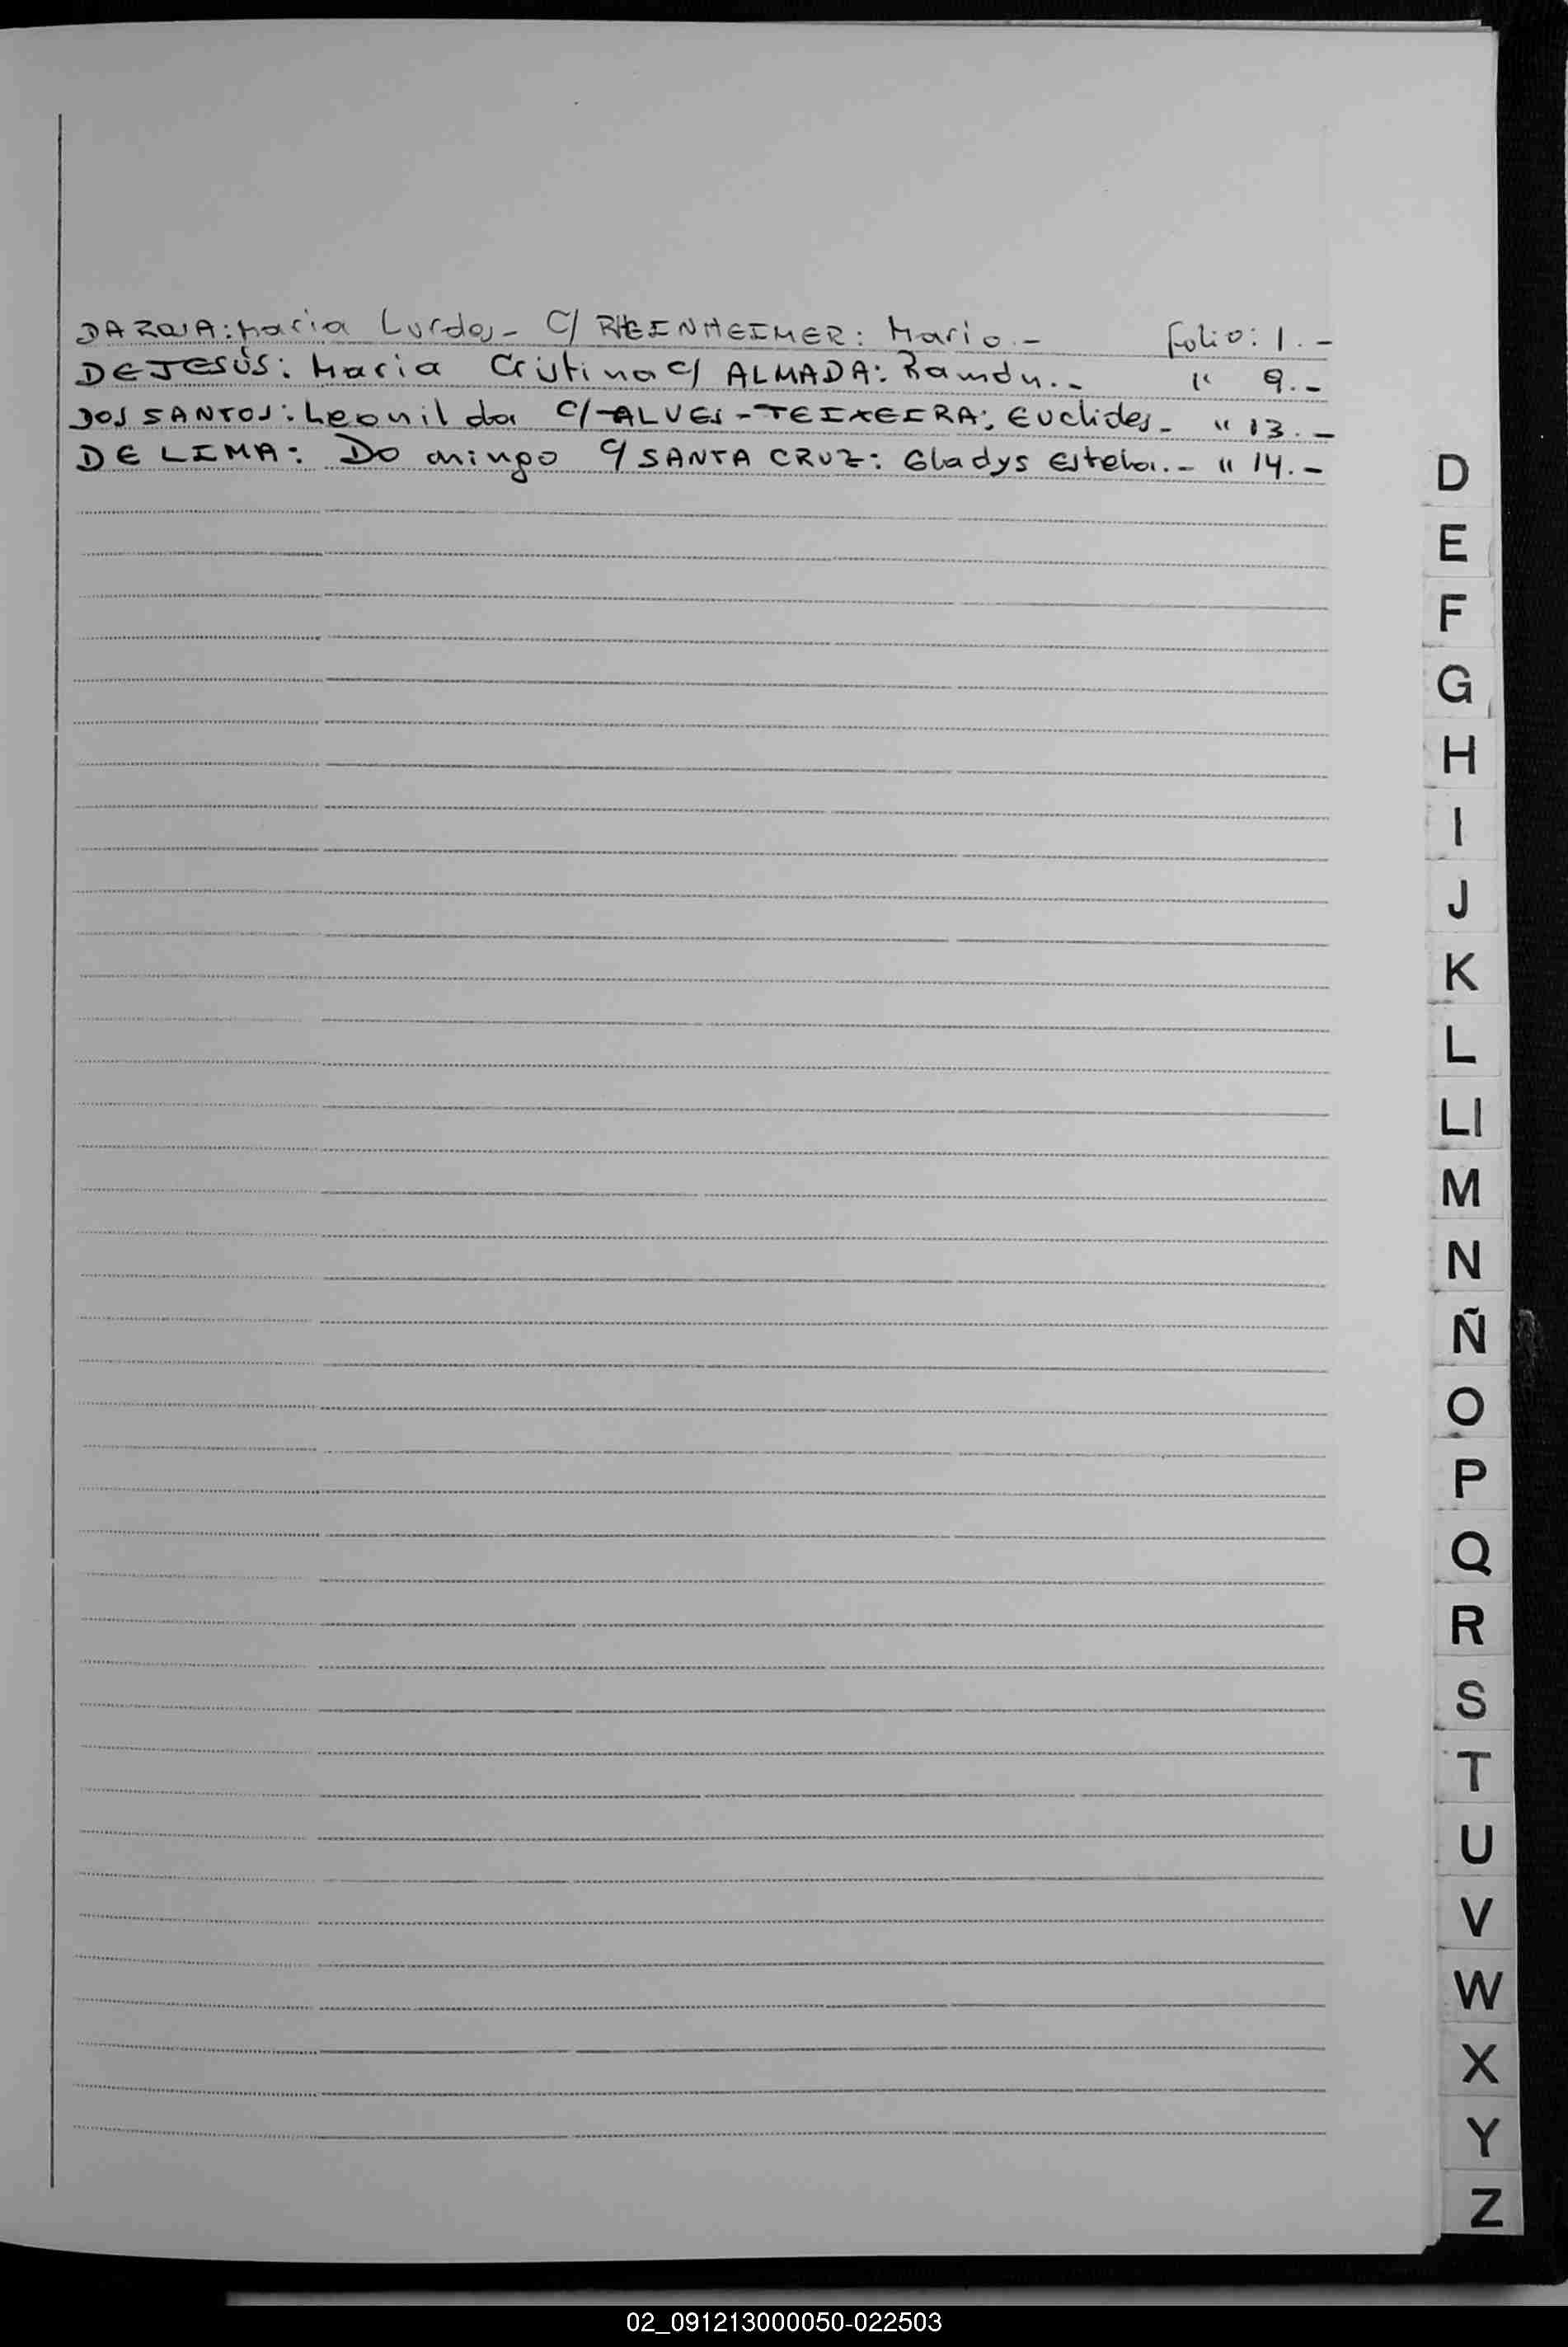 DA ROSA: Maria Lurdes - C/ RHEINHEIMER: Mario. - folio: 1. -
DE JESÚS: Maria Cristina C/ ALMADA: Ramón. - " 9. -
DOS SANTOS: Leonilda C/ ALVES - TEIXEIRA: Euclides - " 13. -
DE LIMA: Domingo C/ SANTA CRUZ: Gladys Estela. - " 14. -
D
E
F
G
H
I
J
K
L
Ll
M
N
Ñ
O
P
Q
R
S
T
U
V
W
X
Y
Z
02_091213000050-022503